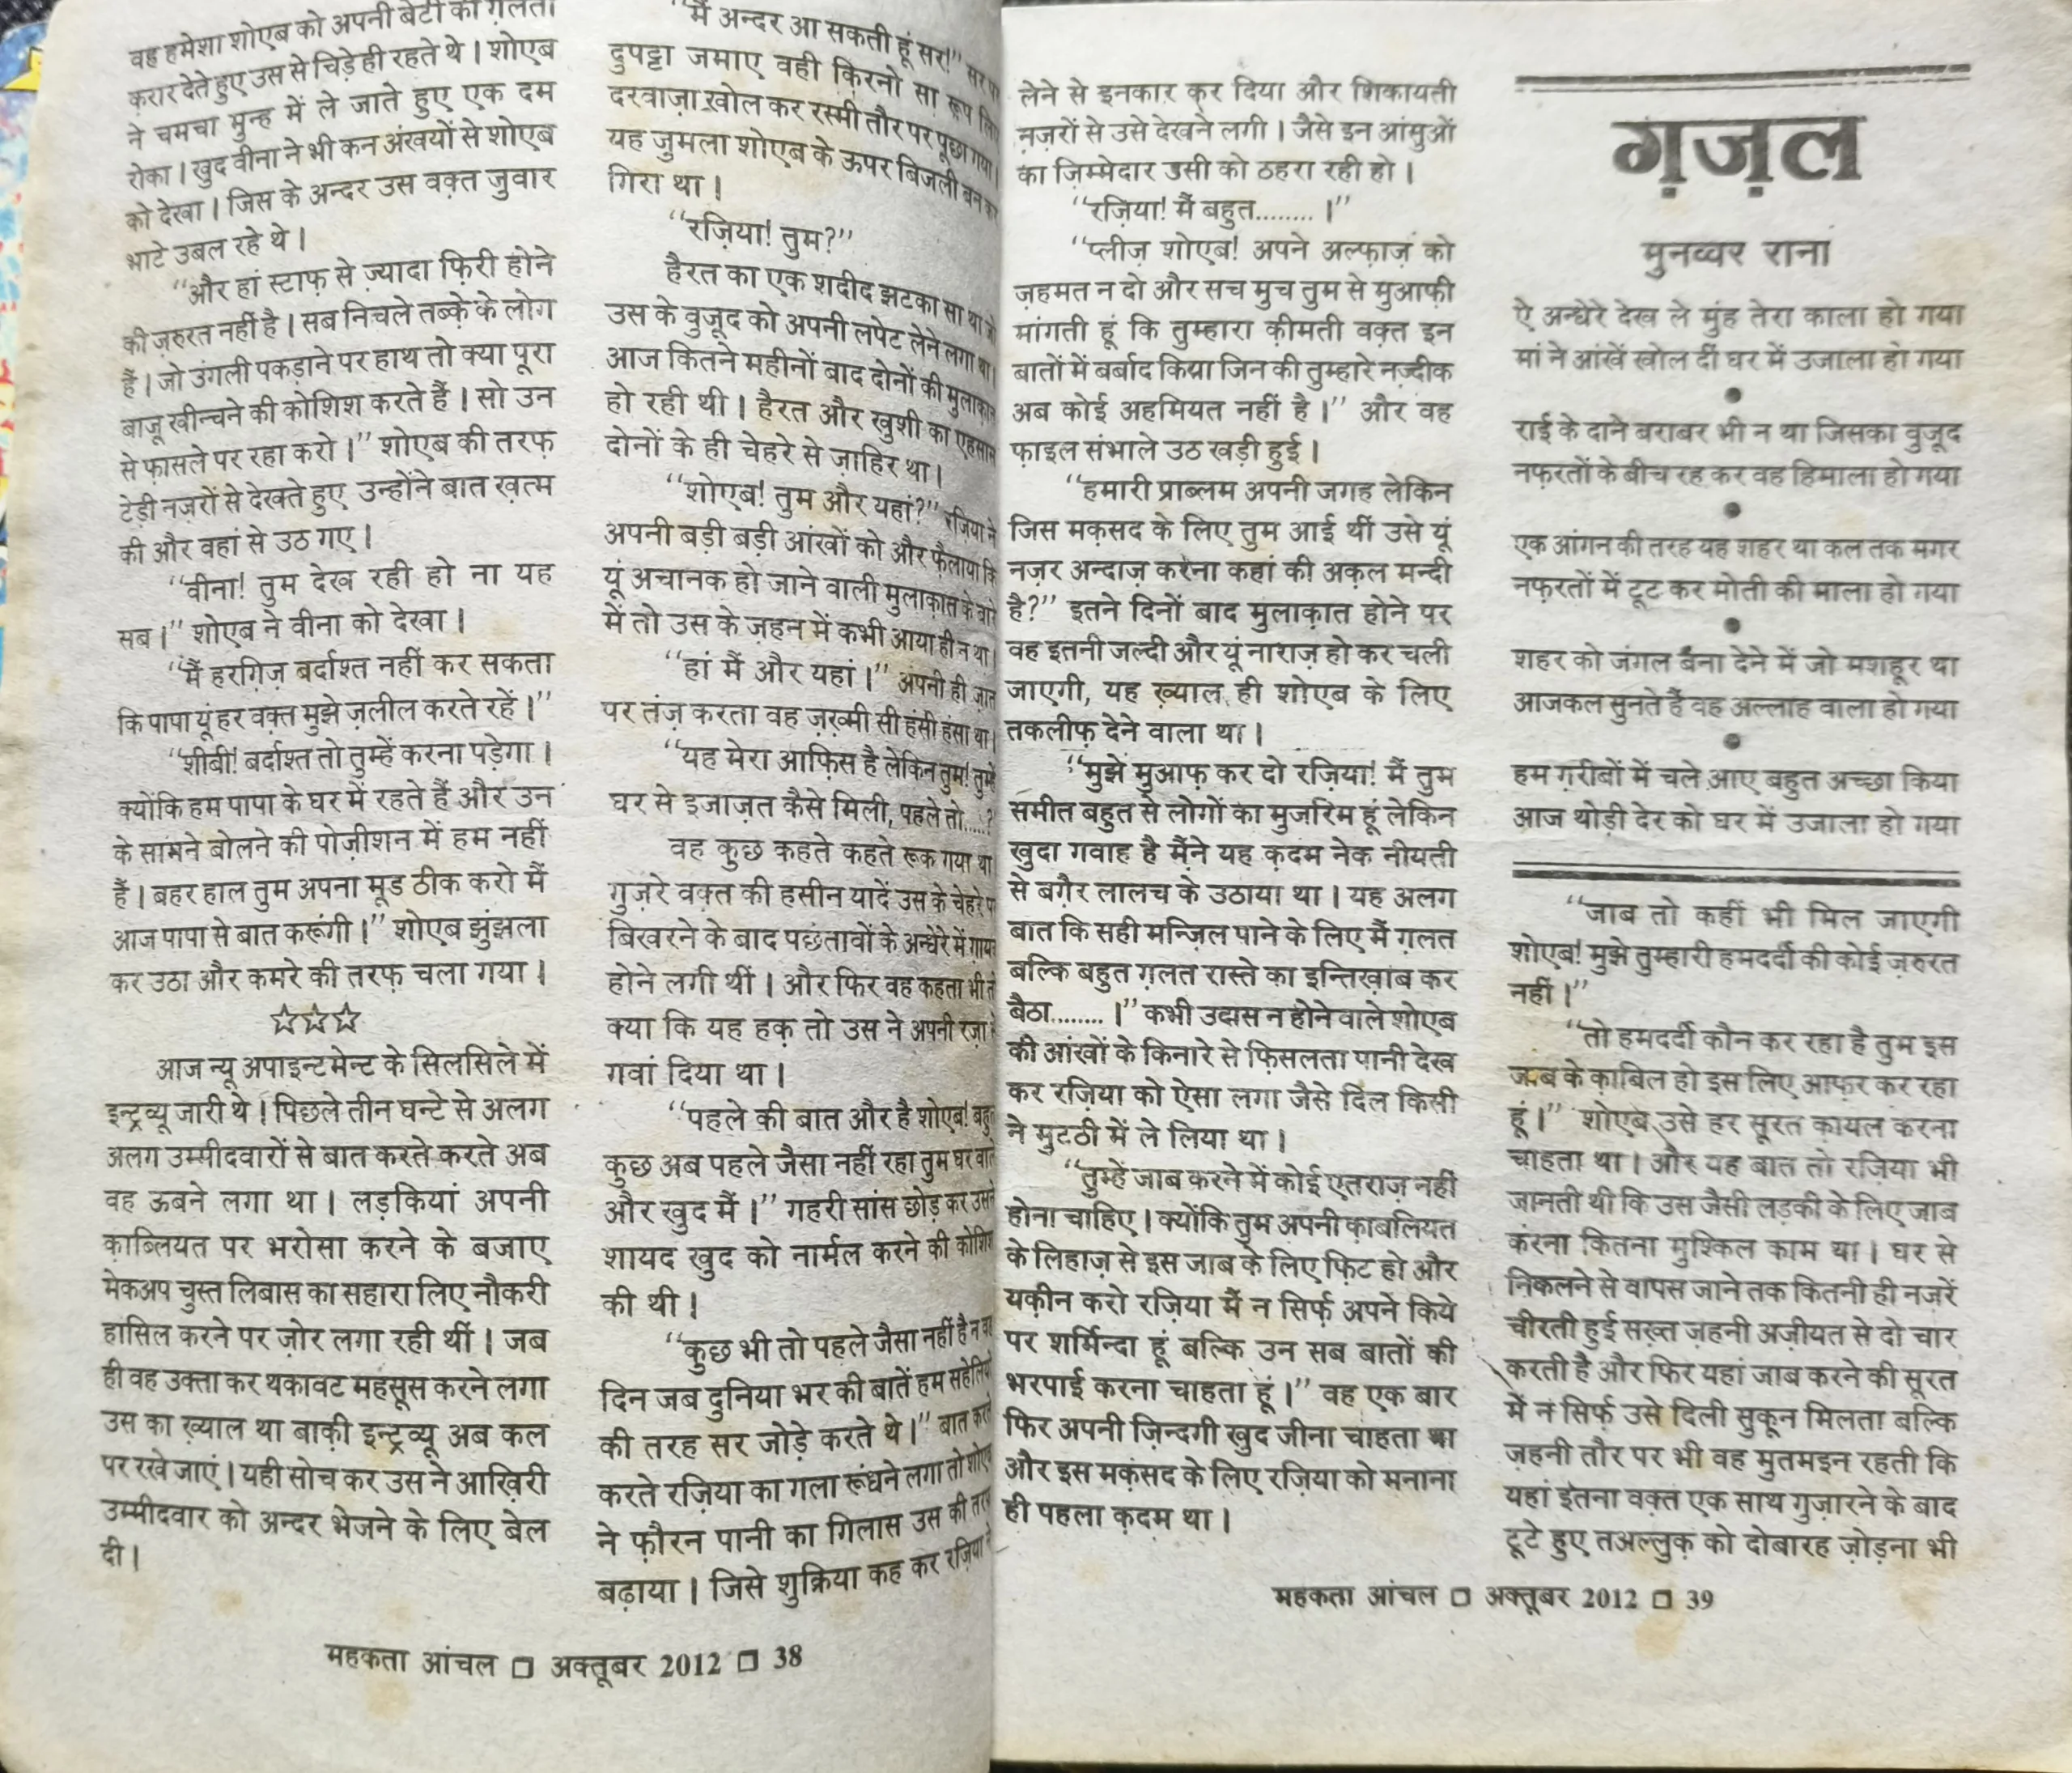 वह हमेशा शोएब को अपनी बेटी की ग़लती
करार देते हुए उस से चिड़े ही रहते थे। शोएब
ने चमचा मुन्ह में ले जाते हुए एक दम
रोका। खुद वीना ने भी कन अंखयों से शोएब
को देखा। जिस के अन्दर उस वक़्त जुवार
भाटे उबल रहे थे।
“और हां स्टाफ़ से ज़्यादा फ़िरी होने
की ज़रुरत नहीं है। सब निचले तब्क़े के लोग
हैं। जो उंगली पकड़ाने पर हाथ तो क्या पूरा
बाजू खीन्चने की कोशिश करते हैं। सो उन
से फासले पर रहा करो।” शोएब की तरफ़
टेड़ी नज़रों से देखते हुए उन्होंने बात ख़त्म
की और वहां से उठ गए।
“वीना! तुम देख रही हो ना यह
सब।” शोएब ने वीना को देखा।
“मैं हरग़िज़ बर्दाश्त नहीं कर सकता
कि पापा यूं हर वक़्त मुझे ज़लील करते रहें।”
“शीबी! बर्दाश्त तो तुम्हें करना पड़ेगा।
क्योंकि हम पापा के घर में रहते हैं और उन
के सामने बोलने की पोज़ीशन में हम नहीं
हैं। बहर हाल तुम अपना मूड ठीक करो मैं
आज पापा से बात करूंगी।” शोएब झुंझला
कर उठा और कमरे की तरफ़ चला गया।
☆☆☆
आज न्यू अपाइन्टमेन्ट के सिलसिले में
इन्ट्रव्यू जारी थे। पिछले तीन घन्टे से अलग
अलग उम्मीदवारों से बात करते करते अब
वह ऊबने लगा था। लड़कियां अपनी
क़ाब्लियत पर भरोसा करने के बजाए
मेकअप चुस्त लिबास का सहारा लिए नौकरी
हासिल करने पर ज़ोर लगा रही थीं। जब
ही वह उक्ता कर थकावट महसूस करने लगा
उस का ख़्याल था बाक़ी इन्ट्रव्यू अब कल
पर रखे जाएं। यही सोच कर उस ने आख़िरी
उम्मीदवार को अन्दर भेजने के लिए बेल
दी।
“मैं अन्दर आ सकती हूं सर!” सर पर
दुपट्टा जमाए वही किरनो सा रूप लिए
दरवाज़ा खोल कर रस्मी तौर पर पूछा गया।
यह जुमला शोएब के ऊपर बिजली बन कर
गिरा था।
“रज़िया! तुम?”
हैरत का एक शदीद झटका सा था जो
उस के वुजूद को अपनी लपेट लेने लगा था।
आज कितने महीनों बाद दोनों की मुलाक़ात
हो रही थी। हैरत और खुशी का एहसास
दोनों के ही चेहरे से ज़ाहिर था।
“शोएब! तुम और यहां?” रज़िया ने
अपनी बड़ी बड़ी आंखों को और फैलाया कि
यूं अचानक हो जाने वाली मुलाक़ात के बारे
में तो उस के ज़हन में कभी आया ही न था।
“हां मैं और यहां।” अपनी ही ज़ात
पर तंज़ करता वह ज़ख़्मी सी हंसी हंसा था।
“यह मेरा आफ़िस है लेकिन तुम! तुम्हें
घर से इजाज़त कैसे मिली, पहले तो.....?
वह कुछ कहते कहते रूक गया था।
गुज़रे वक़्त की हसीन यादें उस के चेहरे पर
बिखरने के बाद पछतावों के अन्धेरे में गायब
होने लगी थीं। और फिर वह कहता भी तो
क्या कि यह हक़ तो उस ने अपनी रज़ा से
गवां दिया था।
“पहले की बात और है शोएब! बहुत
कुछ अब पहले जैसा नहीं रहा तुम घर वाले
और खुद मैं।” गहरी सांस छोड़ कर उसने
शायद खुद को नार्मल करने की कोशिश
की थी।
“कुछ भी तो पहले जैसा नहीं है न वह
दिन जब दुनिया भर की बातें हम सहेलियों
की तरह सर जोड़े करते थे।” बात करते
करते रज़िया का गला रूंधने लगा तो शोएब
ने फ़ौरन पानी का गिलास उस की तरफ़
बढ़ाया। जिसे शुक्रिया कह कर रज़िया ने
महकता आंचल □ अक्तूबर 2012 □ 38
लेने से इनकार कर दिया और शिकायती
नज़रों से उसे देखने लगी। जैसे इन आंसुओं
का ज़िम्मेदार उसी को ठहरा रही हो।
“रज़िया! मैं बहुत........।”
“प्लीज़ शोएब! अपने अल्फ़ाज़ को
ज़हमत न दो और सच मुच तुम से मुआफ़ी
मांगती हूं कि तुम्हारा क़ीमती वक़्त इन
बातों में बर्बाद किया जिन की तुम्हारे नज़्दीक
अब कोई अहमियत नहीं है।” और वह
फ़ाइल संभाले उठ खड़ी हुई।
“हमारी प्राब्लम अपनी जगह लेकिन
जिस मक़सद के लिए तुम आई थीं उसे यूं
नज़र अन्दाज़ करना कहां की अक़ल मन्दी
है?” इतने दिनों बाद मुलाक़ात होने पर
वह इतनी जल्दी और यूं नाराज़ हो कर चली
जाएगी, यह ख़्याल ही शोएब के लिए
तकलीफ़ देने वाला था।
“मुझे मुआफ़ कर दो रज़िया! मैं तुम
समीत बहुत से लोगों का मुजरिम हूं लेकिन
खुदा गवाह है मैंने यह क़दम नेक नीयती
से बग़ैर लालच के उठाया था। यह अलग
बात कि सही मन्ज़िल पाने के लिए मैं ग़लत
बल्कि बहुत ग़लत रास्ते का इन्तिख़ाब कर
बैठा........।” कभी उदास न होने वाले शोएब
की आंखों के किनारे से फ़िसलता पानी देख
कर रज़िया को ऐसा लगा जैसे दिल किसी
ने मुटठी में ले लिया था।
“तुम्हें जाब करने में कोई एतराज़ नहीं
होना चाहिए। क्योंकि तुम अपनी क़ाबलियत
के लिहाज़ से इस जाब के लिए फ़िट हो और
यक़ीन करो रज़िया मैं न सिर्फ़ अपने किये
पर शर्मिन्दा हूं बल्कि उन सब बातों की
भरपाई करना चाहता हूं।” वह एक बार
फिर अपनी ज़िन्दगी खुद जीना चाहता था
और इस मक़सद के लिए रज़िया को मनाना
ही पहला क़दम था।
ग़ज़ल
मुनव्वर राना
ऐ अन्धेरे देख ले मुंह तेरा काला हो गया
मां ने आंखें खोल दीं घर में उजाला हो गया
●
राई के दाने बराबर भी न था जिसका वुजूद
नफ़रतों के बीच रह कर वह हिमाला हो गया
●
एक आंगन की तरह यह शहर था कल तक मगर
नफ़रतों में टूट कर मोती की माला हो गया
●
शहर को जंगल बना देने में जो मशहूर था
आजकल सुनते हैं वह अल्लाह वाला हो गया
●
हम ग़रीबों में चले आए बहुत अच्छा किया
आज थोड़ी देर को घर में उजाला हो गया
“जाब तो कहीं भी मिल जाएगी
शोएब! मुझे तुम्हारी हमदर्दी की कोई ज़रुरत
नहीं।”
“तो हमदर्दी कौन कर रहा है तुम इस
जाब के क़ाबिल हो इस लिए आफ़र कर रहा
हूं।” शोएब उसे हर सूरत क़ायल करना
चाहता था। और यह बात तो रज़िया भी
जानती थी कि उस जैसी लड़की के लिए जाब
करना कितना मुश्किल काम था। घर से
निकलने से वापस जाने तक कितनी ही नज़रें
चीरती हुई सख़्त ज़हनी अज़ीयत से दो चार
करती है और फिर यहां जाब करने की सूरत
में न सिर्फ़ उसे दिली सुकून मिलता बल्कि
ज़हनी तौर पर भी वह मुतमइन रहती कि
यहां इतना वक़्त एक साथ गुज़ारने के बाद
टूटे हुए तअल्लुक़ को दोबारह ज़ोड़ना भी
महकता आंचल □ अक्तूबर 2012 □ 39